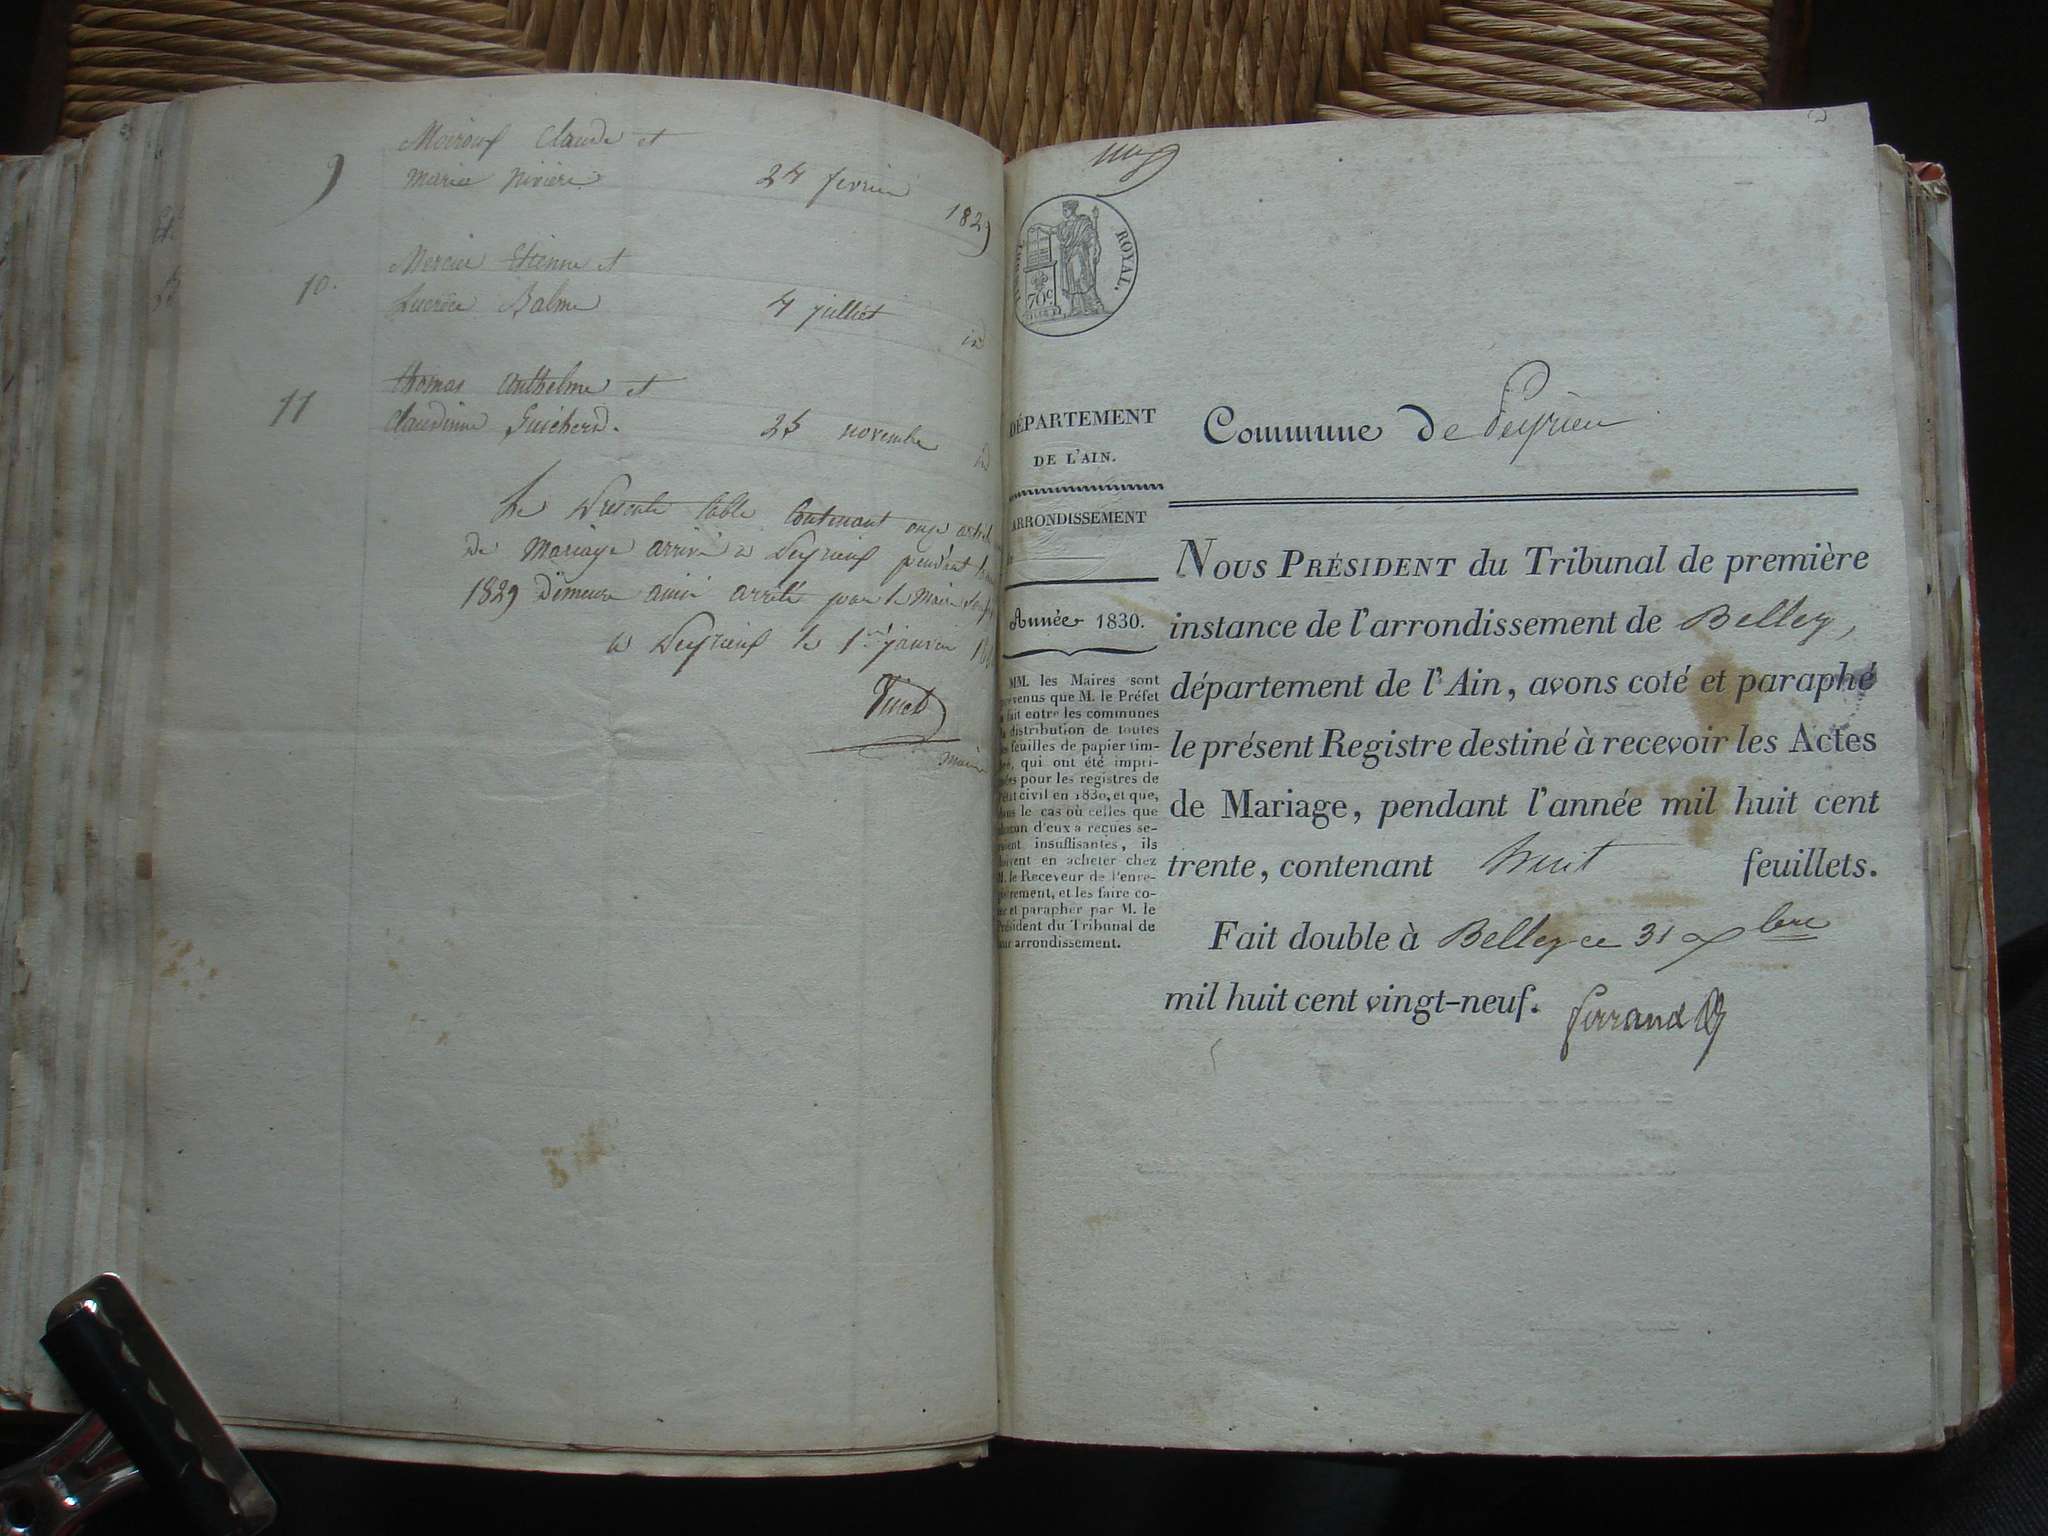 9
Moiroux Claude et
marie riviere 24 fevrier 1829
10.
Mercier Etienne et
Lucrece Balme 4 julliet id
11
thomas anthelme et
Claudinne Guicherd. 25 novembre id
Le Presente table Contenant onze
de Mariage arrivé a Peyrieux pendant
1829 Demeure ainsi arrêté par le Maire
a Peyrieux le 1er janvier
Vinet
maire
ROYAL.
70c
DÉPARTEMENT
DE L'AIN.
ARRONDISSEMENT
Année 1830.
MM. les Maires sont
prévenus que M. le Préfet
a fait entre les communes
la distribution de toutes
les feuilles de papier tim-
bré, qui ont été impri-
mées pour les registres de
l'état civil en 1830, et que,
dans le cas où celles que
chacun d'eux a reçues se-
roient insuffisantes, ils
doivent en acheter chez
M. le Receveur de l'enre-
gistrement, et les faire co-
ter et parapher par M. le
Président du Tribunal de
leur arrondissement.
Commune de Peyrieu
NOUS PRÉSIDENT du Tribunal de première
instance de l'arrondissement de Belley,
département de l'Ain, avons coté et paraphé
le présent Registre destiné à recevoir les Actes
de Mariage, pendant l'année mil huit cent
trente, contenant huit feuillets.
Fait double à Belley ce 31 Xbre
mil huit cent vingt-neuf. Ferrand